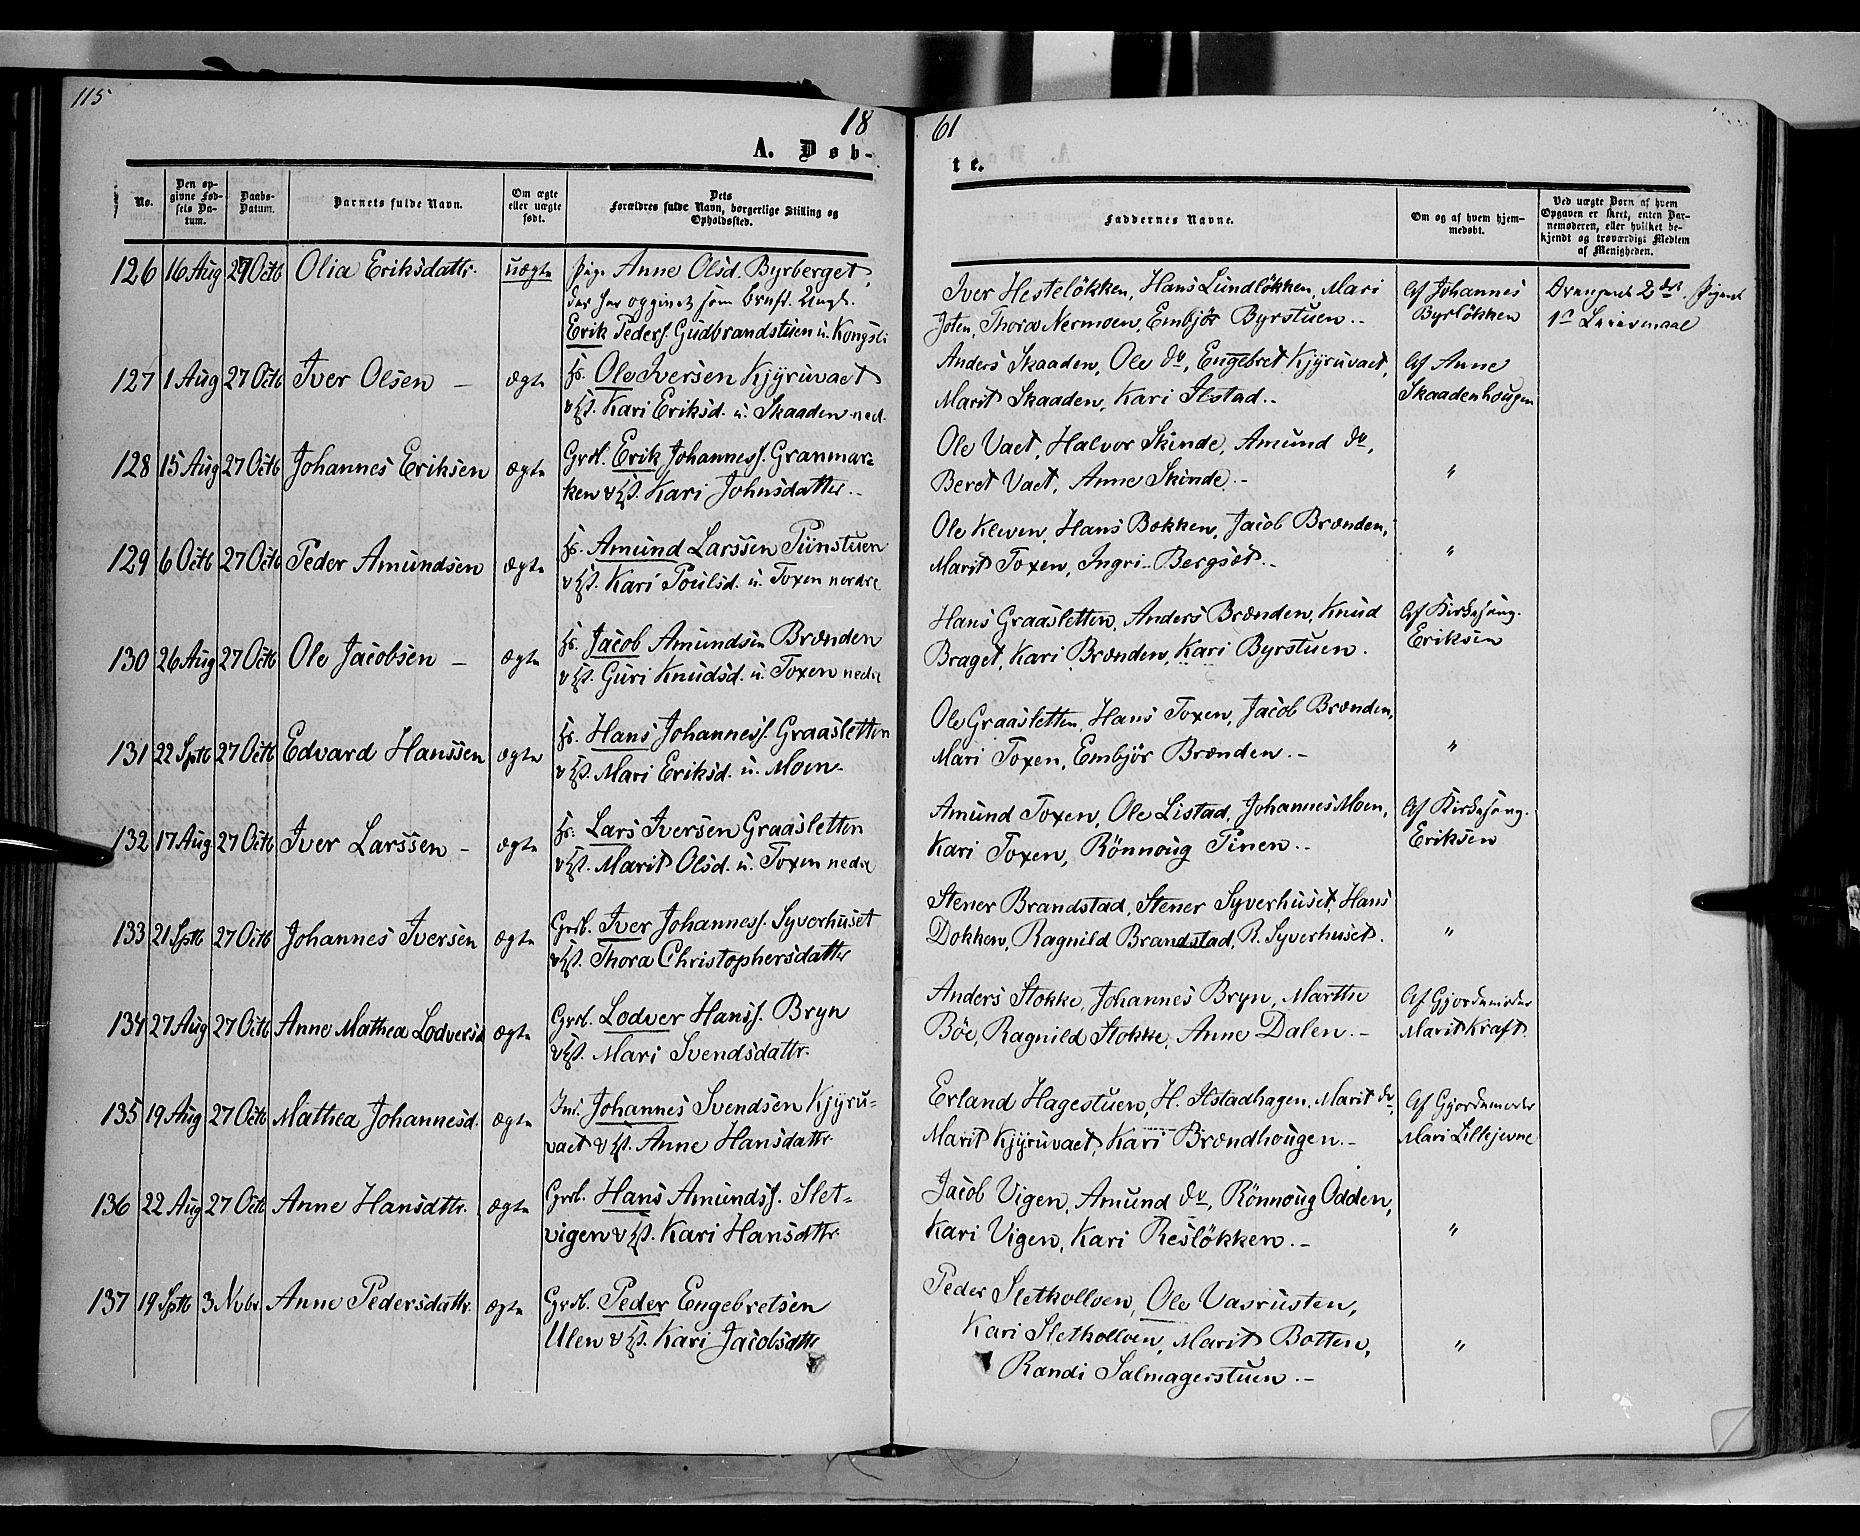 115
18
61
A. Døb-
te.
No.
Den op-
givne Fød-
sels Da-
tum.
Daabs-
Datum.
Barnets fulde Navn.
Om ægte
eller uægte
født.
Dets
Forældres fulde Navn, borgerlige Stilling og
Opholdssted.
Faddernes Navne.
Om og af hvem hjem-
medøbt.
Ved uægte Børn af hvem
Opgaven er skeet, enten Bar-
nemoderen, eller hvilket be-
kjendt og troværdigt Medlem
af Menigheden.
126 16 Aug 27 Octb Olia Eriksdattr. uægte Pig. Anne Olsd. Byrberget,
der har opgivet som Barnef. Ungk.
Erik Peders. Gudbrandstuen u. Kongsli
Iver Hesteløkken, Hans Lundløkken, Mari
Joten, Thora Nermoen, Embjør Byrstuen.-
Af Johannes
Byrløkken
Drengens 2det. Pigens
1ste Leiermaal
127 1 Aug 27 Octb Iver Olsen - ægte Hs. Ole Iversen Kjyruvaet
& Hst. Kari Eriksd. u. Skaaden ned.
Anders Skaaden, Ole do, Engebret Kjyruvaet,
Marit Skaaden, Kari Ilstad.-
Af Anne
Skaadenhougen
128 15 Aug 27 Octb Johannes Eriksen ægte Grdb. Erik Johanness. Granmar-
ken & Hst. Kari Johnsdatter.-
Ole Vaet, Halvor Skinde, Amund do,
Beret Vaet, Anne Skinde.-
"
129 6 Octb 27 Octb Peder Amundsen ægte Hs. Amund Larssen Tiinstuen
& Hst. Kari Poulsd. u. Toxen nordre
Ole Kleven, Hans Bokken, Jacob Brænden,
Marit Toxen, Ingri Bergset.-
"
130 26 Aug 27 Octb Ole Jacobsen - ægte Hs. Jacob Amundsen Brænden
& Hst. Guri Knudsd. u. Toxen nedre
Hans Graasletten, Anders Brænden, Knud
Braget, Kari Brænden, Kari Byrstuen.
Af Kirkesang.
Eriksen
131 22 Sptb 27 Octb Edvard Hanssen ægte Hs. Hans Johanness. Graasletten
& Hst. Mari Eriksd. u. Moen-
Ole Graasletten, Hans Toxen, Jacob Brænden,
Mari Toxen, Embjør Brænden.-
"
132 17 Aug 27 Octb Iver Larssen - ægte Hs. Lars Iversen Graasletten
& Hst. Marit Olsd. u. Toxen nedre
Amund Toxen, Ole Listad, Johannes Moen,
Kari Toxen, Rönnoug Tinen.-
Af Kirkesang.
Eriksen
133 21 Sptb 27 Octb Johannes Iversen ægte Grdb. Iver Johanness. Syverhuset
& Hst. Thora Christophersdatter
Stener Brandstad, Stener Syverhuset, Hans
Dokken, Ragnild Brandstad, R. Syverhuset.
"
134 27 Aug 27 Octb Anne Mathea Lodversd ægte Grdb. Lodver Hanss. Bryn
& Hst. Mari Svendsdattr.
Anders Stokke, Johannes Bryn, Marthe
Böe, Ragnild Stokke, Anne Dalen.-
Af Gjordemoder
Marit Kraft.
135 19 Aug 27 Octb Mathea Johannesd. ægte Ind. Johannes Svendsen Kjyru-
vaet & Hst. Anne Hansdattr.
Erland Hagestuen, H. Ilstadhagen, Marit do,
Marit Kjyruvaet, Kari Brændhougen.-
Af Gjordemoder
Mari Lillejevne
136 22 Aug 27 Octb Anne Hansdttr. ægte Grdb. Hans Amundss. Slet-
vigen & Hst. Kari Hansdttr.
Jacob Vigen, Amund do, Rönnoug Odden,
Kari Vigen, Kari Resløkken.-
"
137 19 Sptb 3 Nvbr. Anne Pedersdattr. ægte Grdb. Peder Engebretsen
Ulen & Hst. Kari Jacobsdttr
Peder Slethollen, Ole Vasrusten,
Kari Slethollen, Marit Botten,
Randi Salmagerstuen.-
"